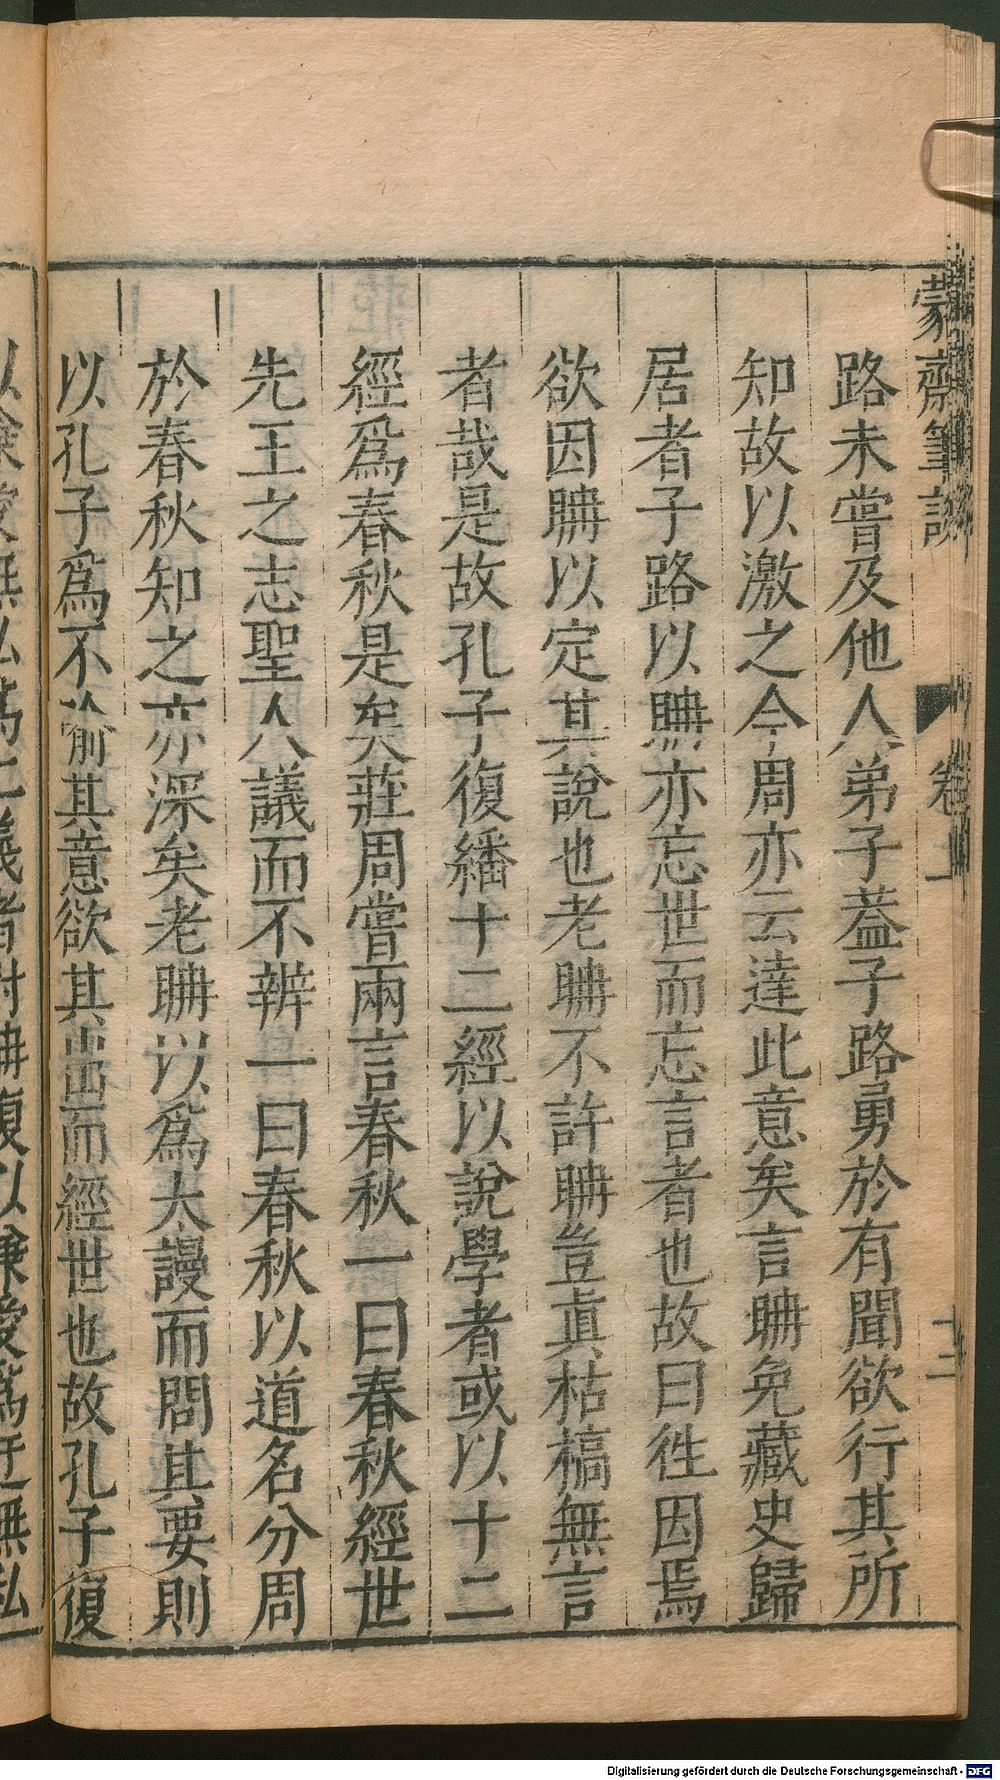 蒙齋筆談
路未嘗及他人弟子葢子路勇於有聞欲行其所
知故以激之今周亦云達此意矣言聃免藏史歸
居者子路以聃亦忘世而忘言者也故曰徃因焉
欲因聃以定其說也老聃不許聃豈眞枯槁無言
者哉是故孔子復繙十二經以說學者或以十二
經爲春秋是矣莊周嘗兩言春秋一曰春秋經世
先王之志聖人議而不辨一曰春秋以道名分周
於春秋知之亦深矣老聃以爲大謾而問其要則
以孔子爲不喻其意欲其出而經世也故孔子復
Digitalisierung gefördert durch die Deutsche Forschungsgemeinschaft - DFG